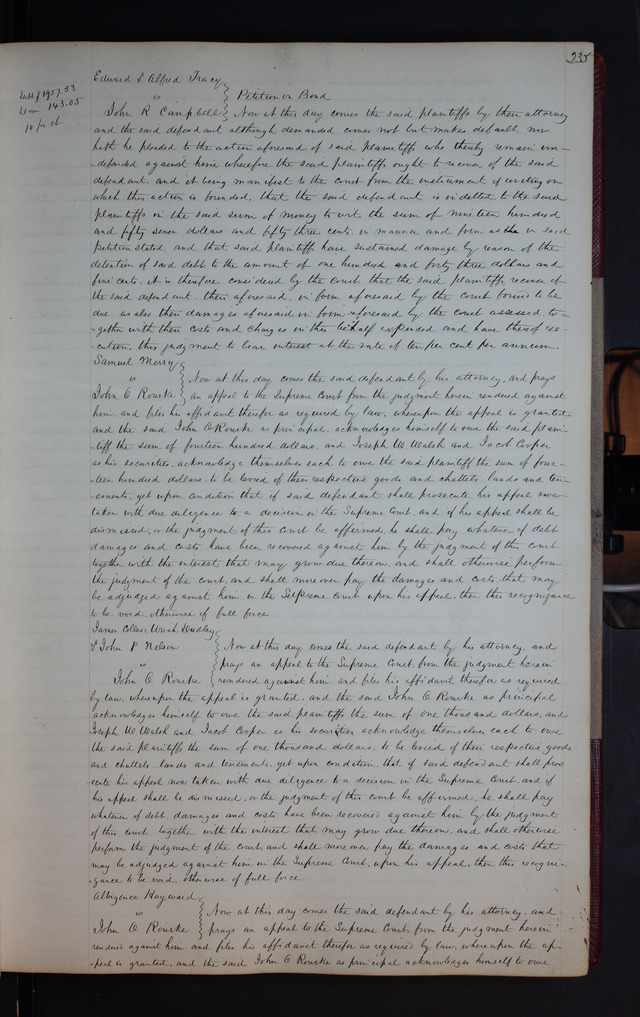 235
Edward & Alfred Tracy
vs } Petition on Bond
Debt $1957.53
Dam 143.05
10 pr ct
John R Campbell } Now at this day comes the said plaintiffs by their attorney
and the said defendant although demanded comes not but makes default nor
hath he pleaded to the action aforesaid of said plaintiffs who thereby remain un-
-defended against him wherefore the said plaintiffs ought to recover of the said
defendant. and it being manifest to the court from the instrument of writing on
which this action is founded, that the said defendant is indebted to the said
plaintiffs in the said sum of money to wit the sum of nineteen hundred
and fifty seven dollars and fifty three cents in manner and form as the in said
petition stated and that said plaintiff have sustained damage by reason of the
detention of said debt to the amount of one hundred and forty three dollars and
five cents. it is therefore considered by the court that the said plaintiffs recover of
the said defendant their aforesaid, in form aforesaid by the court found to be
due as also their damages aforesaid in form aforesaid by the court assessed to-
-gether with their costs and charges in this behalf expended and have thereof exe-
-cution, this judgment to bear interest at the rate of ten per cent per annum.
Samuel Merry
vs } Now at this day comes the said defendant by his attorney, and prays
John O Rourke } an appeal to the Supreme Court from the judgment herein rendered against
him. and files his affidavit therefor as required by law, whereupon the appeal is granted
and the said John O Rourke as principal acknowledges himself to owe the said plain-
-tiff the sum of fourteen hundred dollars. and Joseph W Walsh and Jacob Cooper
as his securities, acknowledge themselves each to owe the said plaintiff the sum of four-
-teen hundred dollars, to be levied of their respective goods and chattels, lands and ten-
-ements, yet upon condition that if said defendant shall prosecute his appeal now
taken with due diligence to a decision in the Supreme Court, and if his appeal shall be
dismissed, or the judgment of this court be affirmed, he shall pay whatever of debt
damages and costs have been recovered against him by the judgment of this court
together with the interest that may grow due thereon, and shall otherwise perform
the judgment of the court, and shall moreover pay the damages and costs that may
be adjudged against him in the Supreme Court upon his appeal. then this recognizance
to be void, otherwise of full force
James Collier, Uriah Dudley
& John P Nelson } Now at this day comes the said defendant by his attorney. and
vs } prays an appeal to the Supreme Court, from the judgment herein
John O Rourke } rendered against him and files his affidavit therefor as required
by law. whereupon the appeal is granted. and the said John O Rourke as principal
acknowledges himself to owe the said plaintiffs the sum of one thousand dollars, and
Joseph W Walsh and Jacob Cooper as his securities acknowledge themselves each to owe
the said plaintiffs the sum of one thousand dollars. to be levied of their respective goods
and chattels. lands and tenements. yet upon condition that if said defendant shall pros
ecute his appeal now taken with due diligence to a decision in the Supreme Court, and if
his appeal shall be dismissed, or the judgment of this court be affirmed, he shall pay
whatever of debt, damages and costs have been recovered against him by the judgment
of this court together with the interest that may grow due thereon, and shall otherwise
perform the judgment of the court, and shall moreover pay the damages and costs that
may be adjudged against him in the Supreme Court, upon his appeal, then this recogni-
-zance to be void, otherwise of full force
Albigence Hayward
vs } Now at this day comes the said defendant by his attorney. and
John O Rourke } prays an appeal to the Supreme Court, from the judgment herein
rendered against him. and files his affidavit therefor as required by law. whereupon the ap-
-peal is granted, and the said John O Rourke as principal acknowledges himself to owe